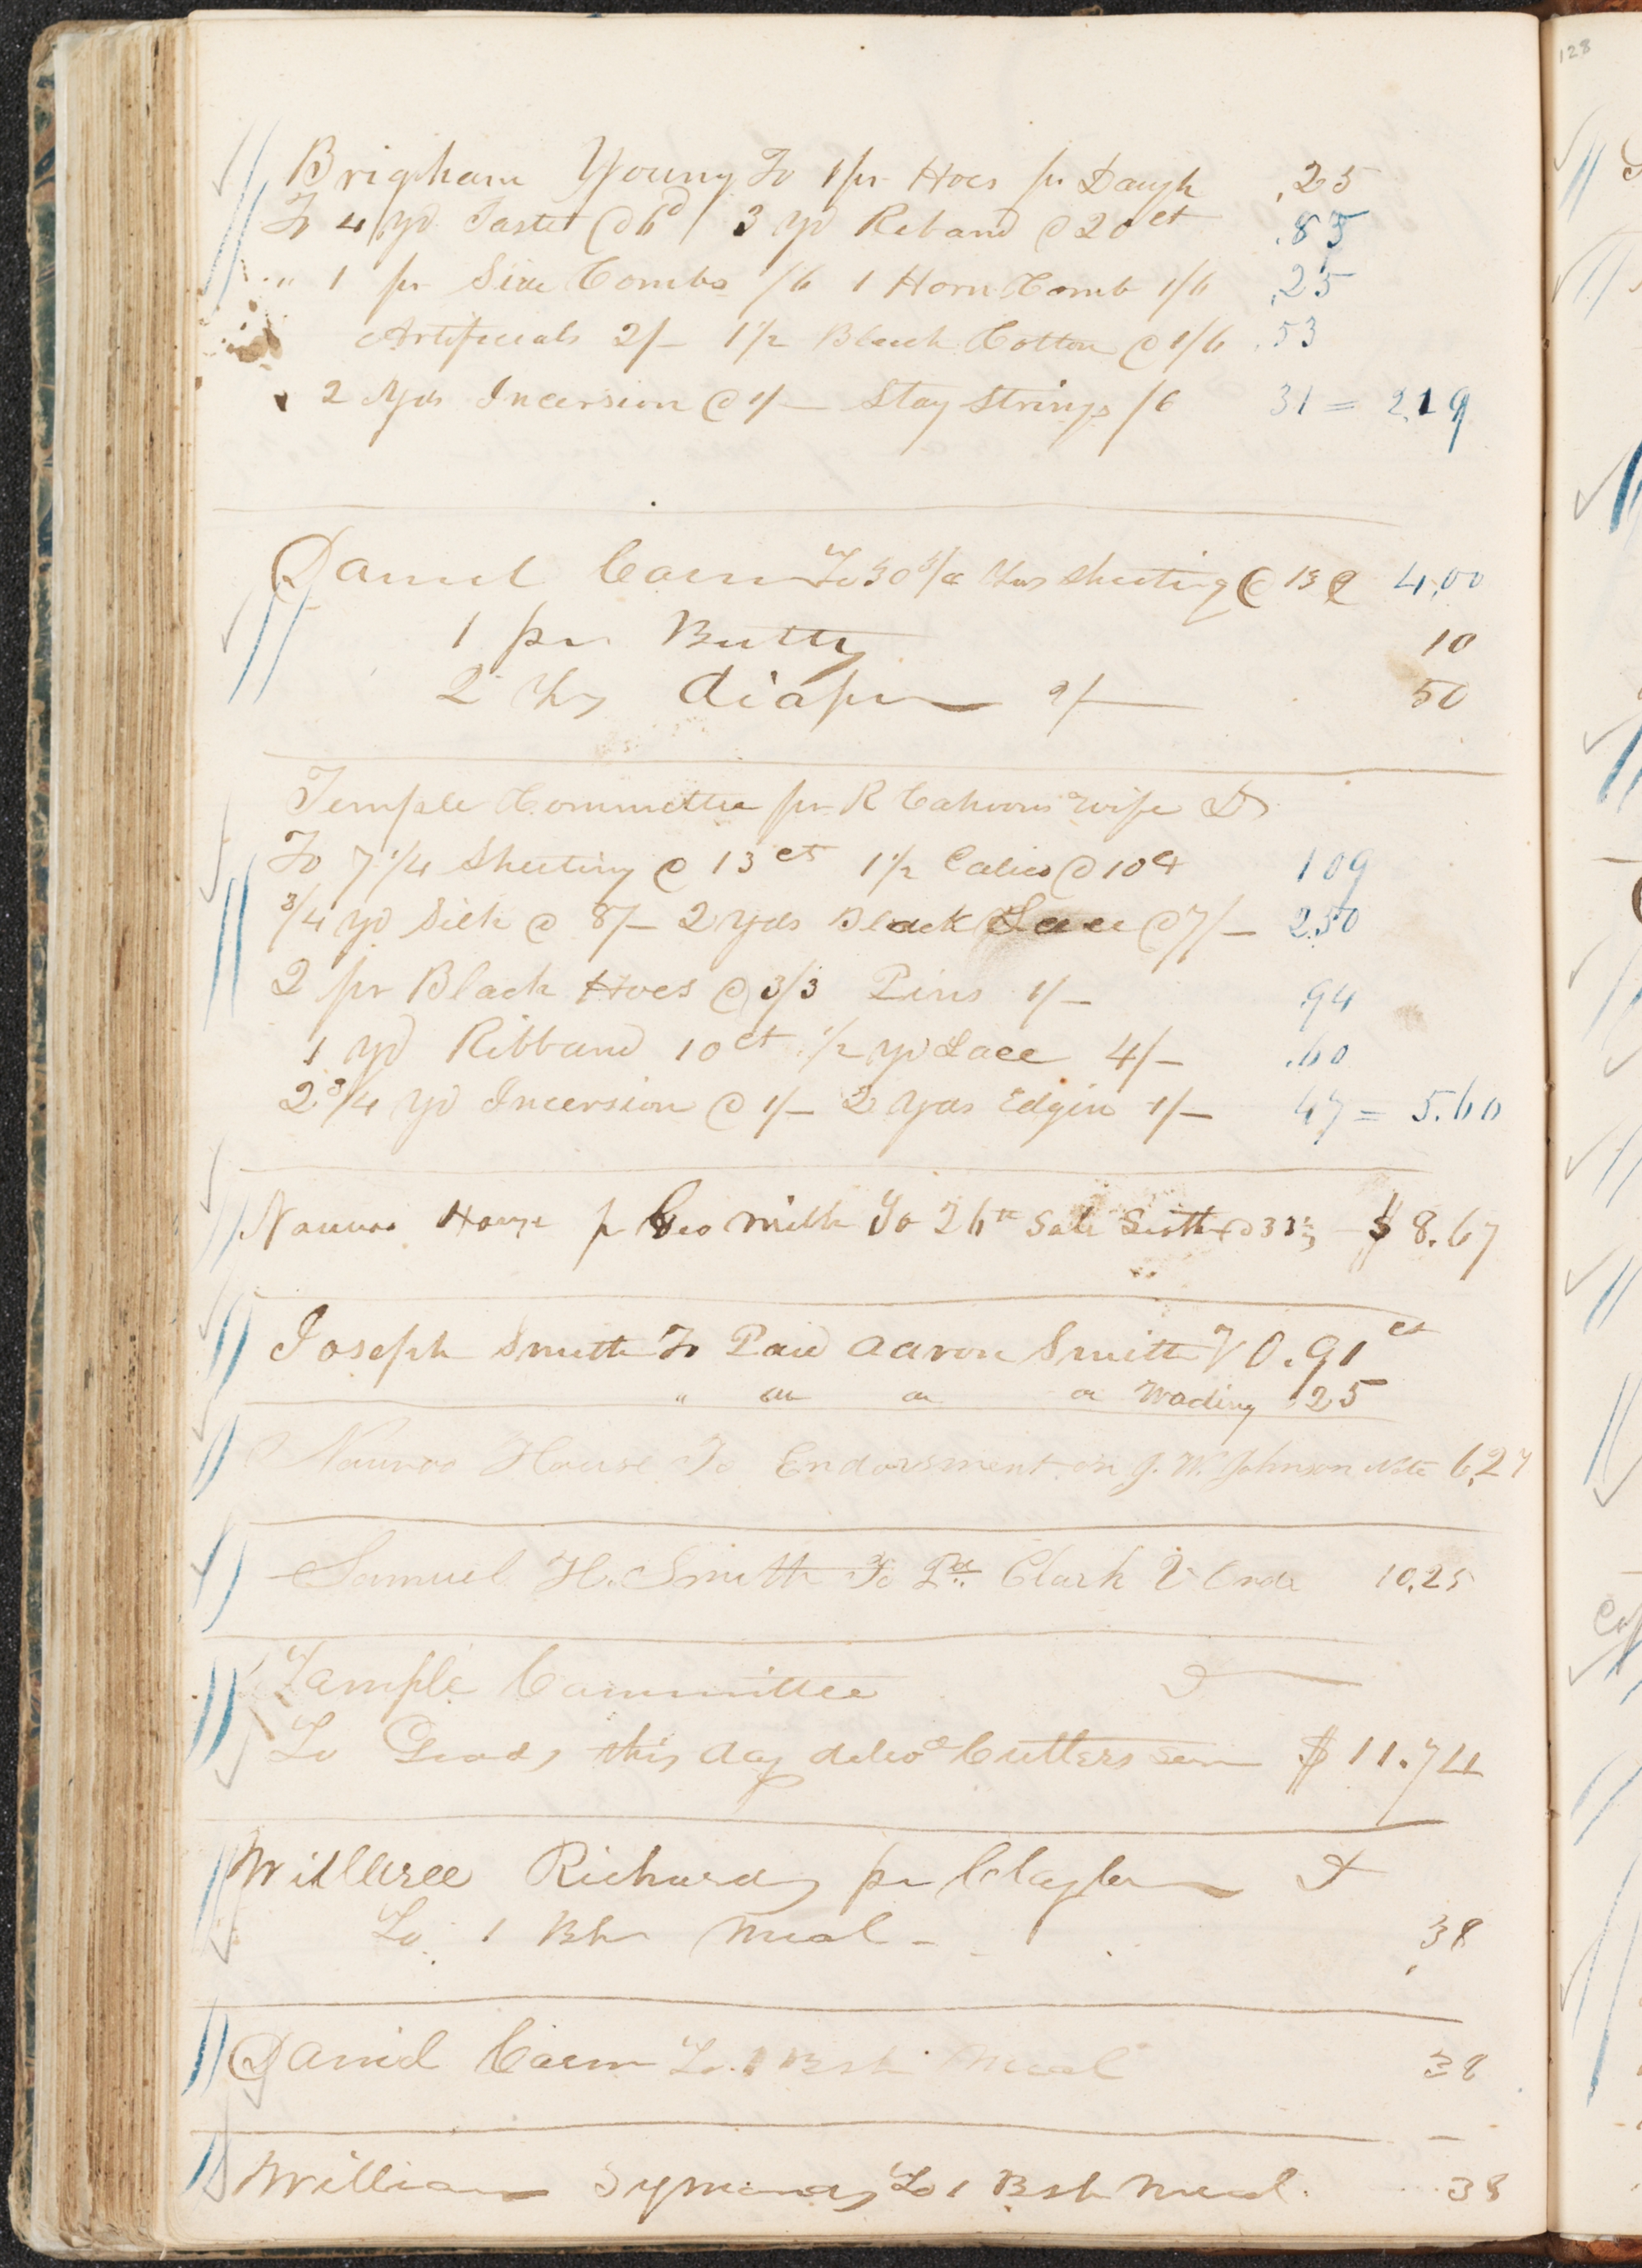 Brigham Young To 1 pr Hoes pr Daugh .25
To 4 yd Tastet @ 6d 3 yd Reband @ 20 ct .85
" 1 pr Side Combs /6 1 Horn Comb 1/6 .25
Artificials 2/– 1 1/2 Black Cotton @ 1/6 .53
2 Yds Incersion @ 1/– Stay Strings /6 31 = 2.19
Daniel Cairn To 30 3/4 Yds Sheeting @ 13 4.00
1 pr Butts 10
2 Yds diaper 2/– 50
Temple Committee pr R Cahoons wife Dr
To 7 1/4 Sheeting @ 13 cts 1 1/2 Calico @ 10 ct 109
3/4 yd Silk @ 8/– 2 yds Black Lace @ 7/– 2.50
2 pr Black Hoes @ 3/3 Pins 1/– .94
1 yd Ribband 10 ct 1/2 yd Lace 4/– .60
2 3/4 yd Incersion @ 1/– 2 yds Edgin 1/– 47 = 5.60
Nauvoo House p Geo Mill To 26 Sale @ 33 1/3 – $ 8.67
Joseph Smith To Paid Aaron Smith V O .91 ct
" " " " Wading .25
Nauvoo House To Endorsment on J. W. Johnson Note 6.27
Samuel H. Smith To Pd Clark V Ordr 10.25
Temple Committee D
To Goods this day delivd Cutlers Son $ 11.74
Willard Richards pr Clayton D
To 1 Bsh Meal - .38
Daniel Cairn To 1 Bsh Meal 38
William Symonds To 1 Bsh Meal. 38
128